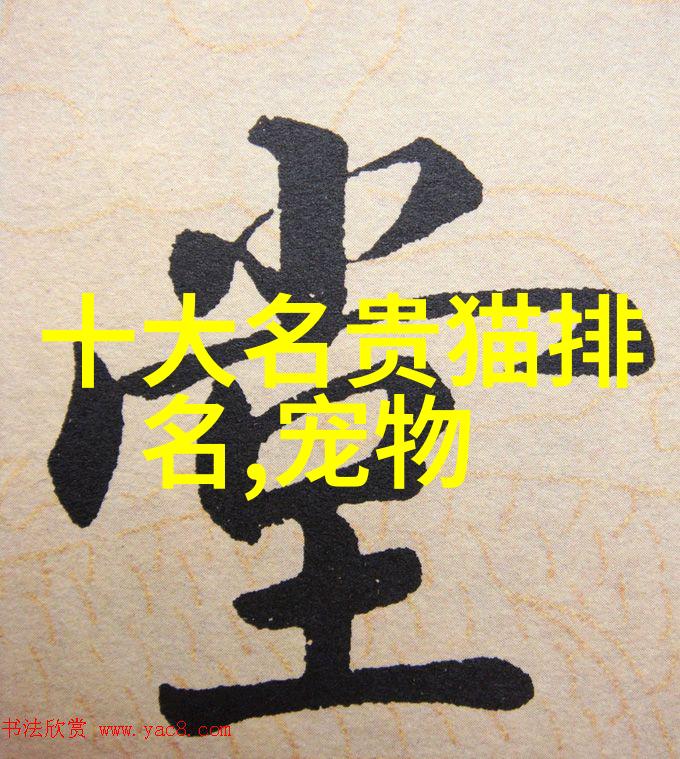 堂
十大名贵猫排
名,宠物
书法欣赏 www.yac8.com